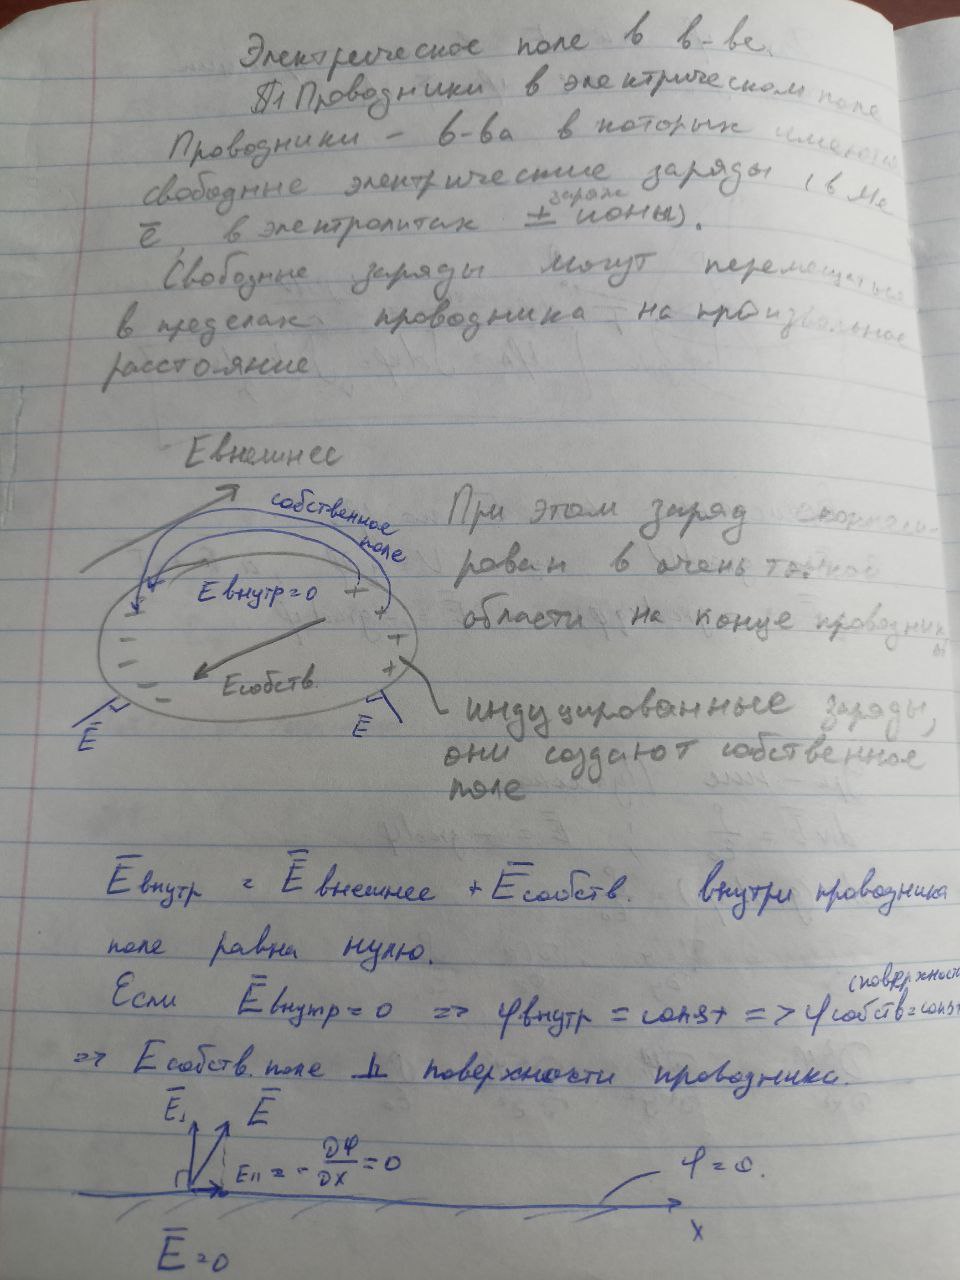 Электрическое поле в в-ве.
§1 Проводники в электрическом поле
Проводники - в-ва в которых имеются
свободные электрические заряды (в Ме
ē, в электролитах ± заряж ионы).
Свободные заряды могут перемещаться
в пределах проводника на произвольное
расстояние
E внешнее
собственное
поле
E внутр = 0
E собств.
Ē
Ē
При этом заряд
в очень тонкой
области на конце проводника
индуцированные заряды,
они создают собственное
поле
Ē внутр = Ē внешнее + Ē собств. внутри проводника
поле равна нулю.
(поверхность
Если Ē внутр = 0 => φ внутр = const => φ собств = const
=> E собств. поле ⊥ поверхности проводника.
Ē⊥ Ē
E|| = - Dφ/DX = 0
φ = 0.
x
Ē = 0